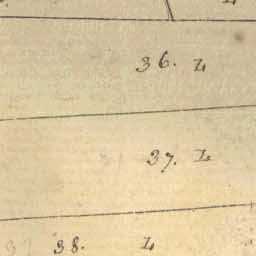 36. L
37. L
38. L